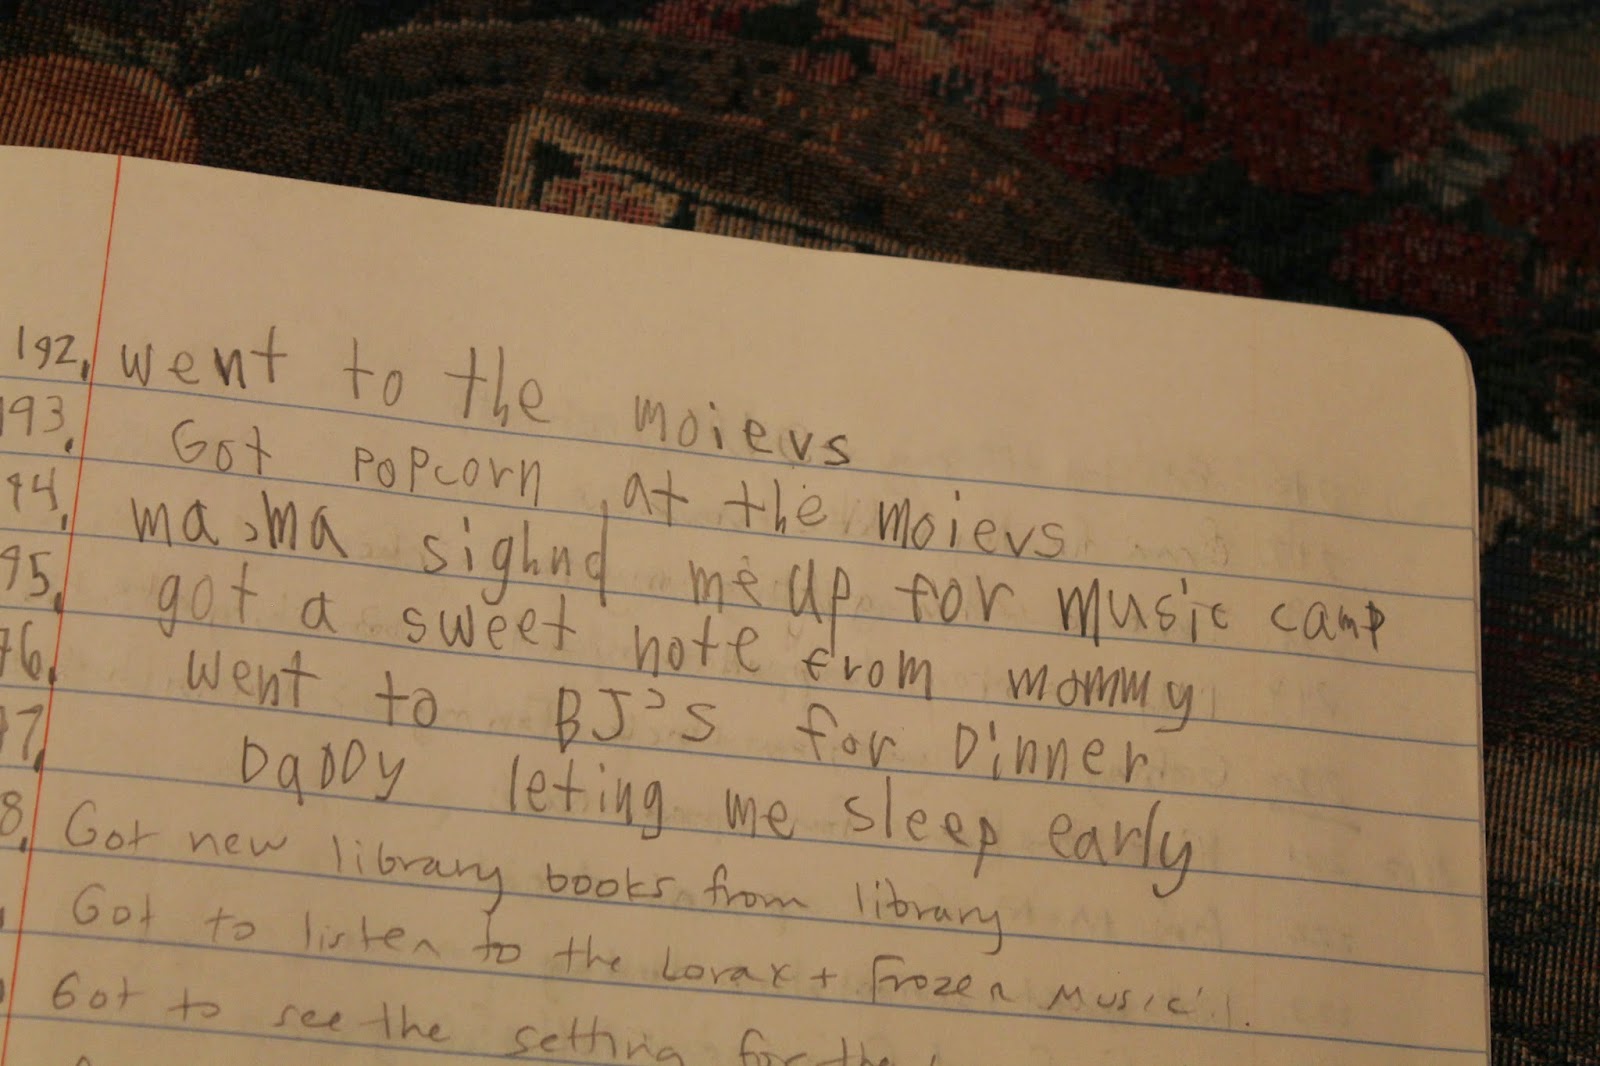 192. went to the moievs
193. Got popcorn at the moievs
94. ma,ma sighnd me up for music camp
95. got a sweet note from mommy
96. went to BJ's for Dinner
97. DaDDy leting me sleep early
8. Got new library books from library
Got to listen to the Lorax + Frozen Music!!
Got to see the setting for the